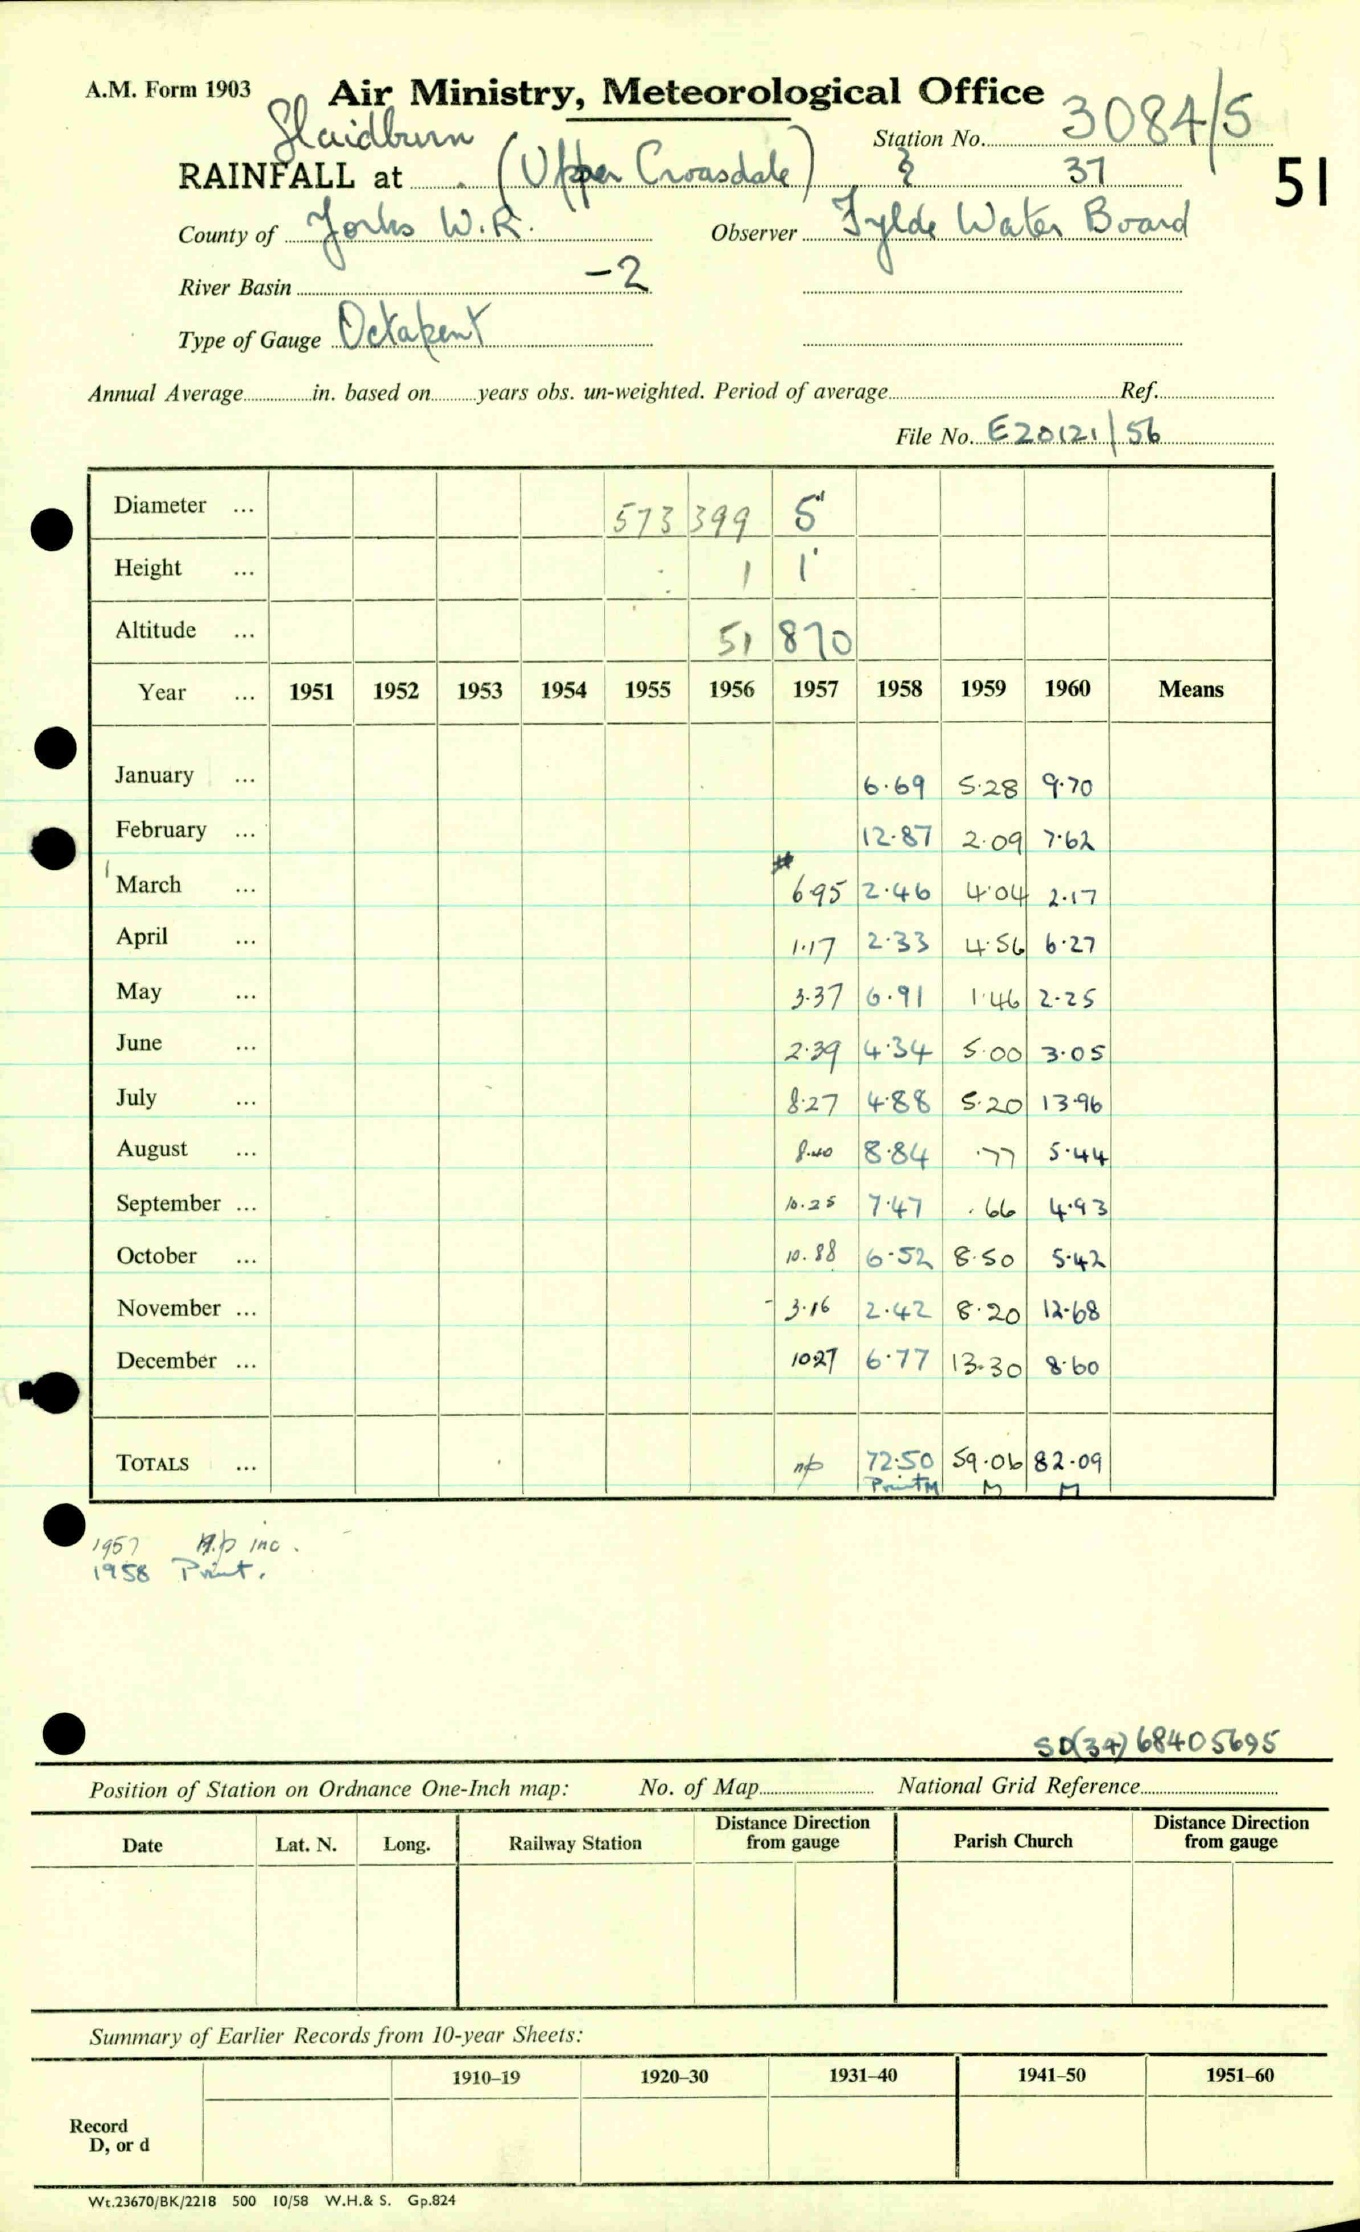 A.M. Form 1903 Air Ministry, Meteorological Office
Slaidburn Station No. 3084/5
RAINFALL at (Upper Croasdale) 37 51
County of Yorks W.R. Observer Fylde Water Board
River Basin -2
Type of Gauge Octapent
Annual Average in. based on years obs. un-weighted. Period of average Ref.
File No. E20121/56
Diameter ... 573 399 5"
Height ... 1 1'
Altitude ... 51 870
Year ... 1951 1952 1953 1954 1955 1956 1957 1958 1959 1960 Means
January ... 6.69 5.28 9.70
February ... 12.87 2.09 7.62
March ... 6.95 2.46 4.04 2.17
April ... 1.17 2.33 4.56 6.27
May ... 3.37 6.91 1.46 2.25
June ... 2.39 4.34 5.00 3.05
July ... 8.27 4.88 5.20 13.96
August ... 8.40 8.84 .77 5.44
September ... 10.25 7.47 .66 4.93
October ... 10.88 6.52 8.50 5.42
November ... 3.16 2.42 8.20 12.68
December ... 10.27 6.77 13.30 8.60
TOTALS ... np 72.50 59.06 82.09
Print M M M
1957 n.p inc.
1958 Print.
SD(34) 68405695
Position of Station on Ordnance One-Inch map: No. of Map National Grid Reference
Date Lat. N. Long. Railway Station Distance Direction from gauge Parish Church Distance Direction from gauge
Summary of Earlier Records from 10-year Sheets:
1910–19 1920–30 1931–40 1941–50 1951–60
Record
D, or d
Wt.23670/BK/2218 500 10/58 W.H.& S. Gp.824